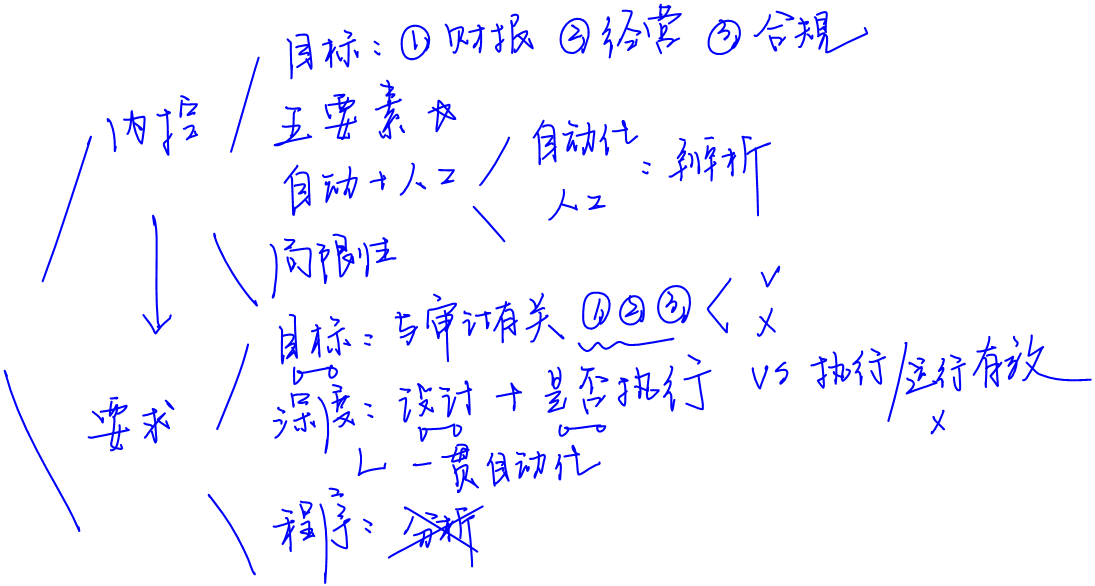 目标：①财报 ②经营 ③合规
内控
五要素 ☆
自动+人工
自动化
人工
：辨析
局限性
目标：与审计有关 ①②③ < √ ×
要求
深度：设计 + 是否执行 vs 执行/运行有效 ×
一贯自动化
程序：分析